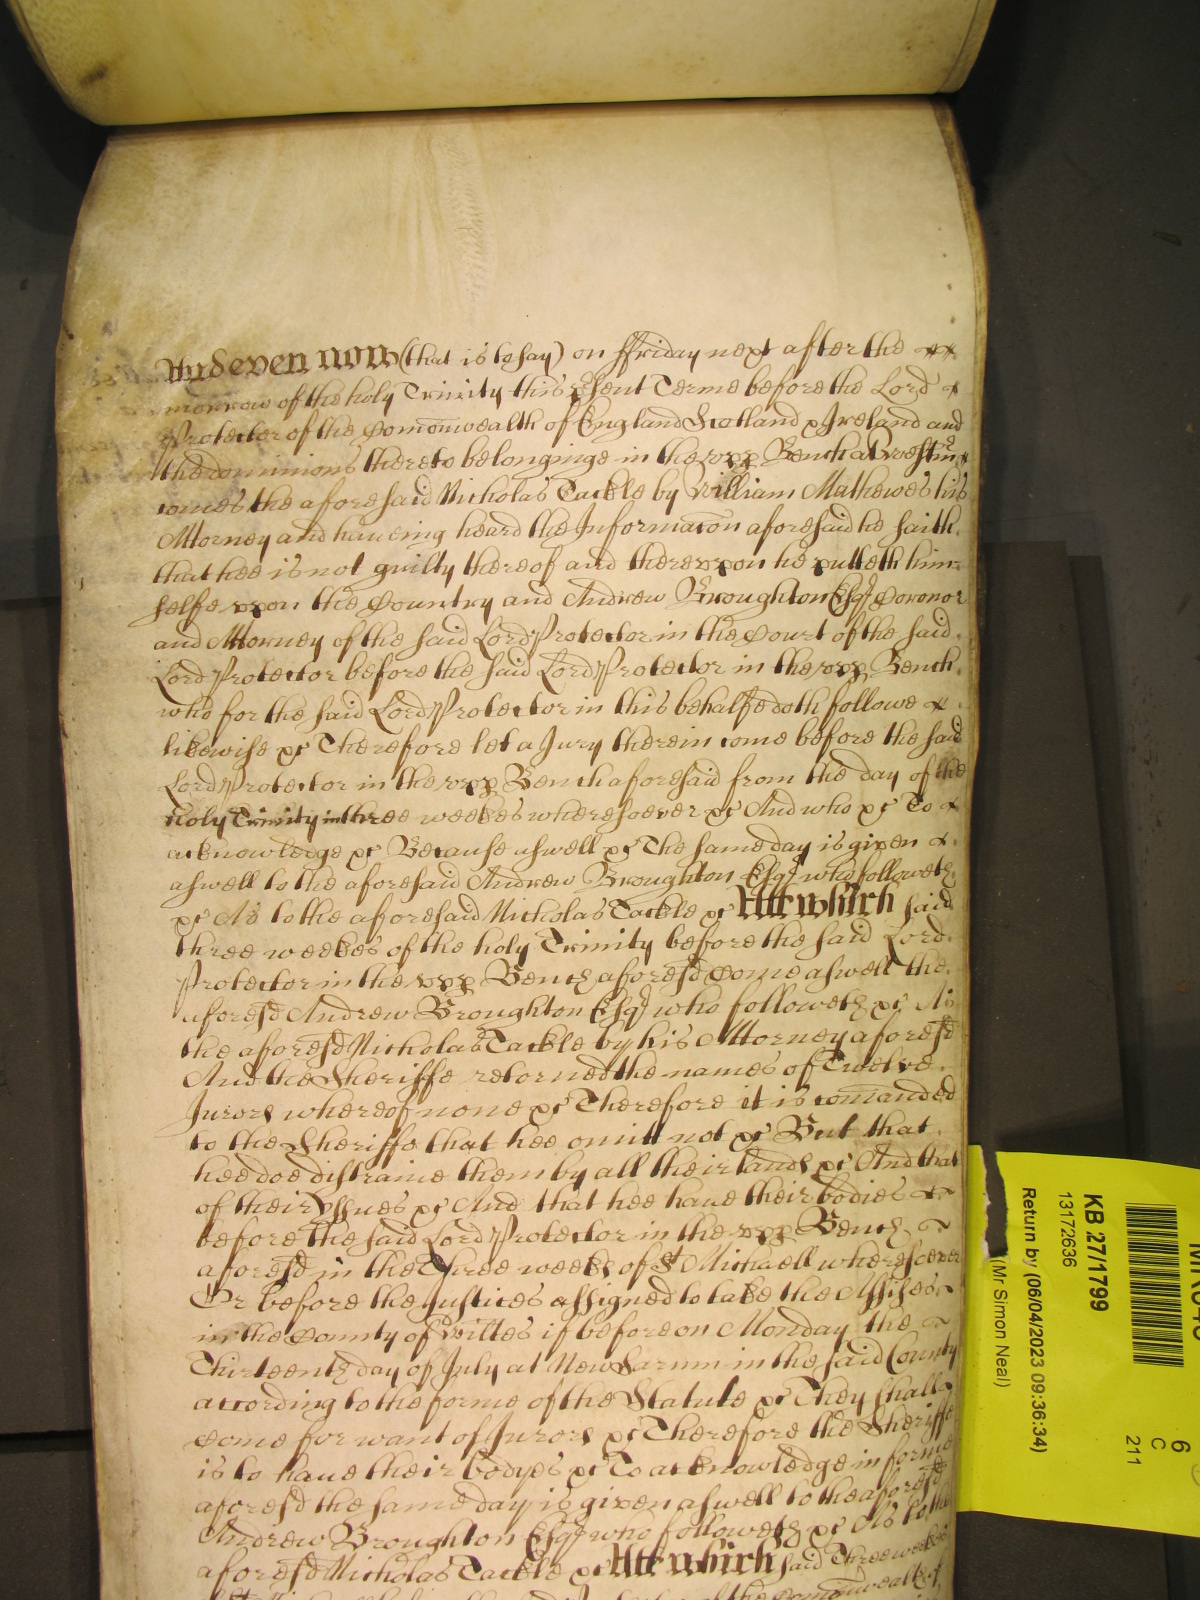 And even now (that is to say) on ffriday next after the
morrow of the holy Trinity this psent Terme before the Lord
Protector of the Comonwealth of England Scotland & Ireland and
the dominions thereto belonginge in the vpp Bench at Westm
comes the aforesaid Nicholas Tackle by William Mathewes his
Attorney and haueing heard the Informacon aforesaid he saith
that hee is not guilty thereof and therevpon he putteth him
selfe vpon the Country and Andrew Broughton Esqr Coronor
and Attorney of the said Lord Protector in the Court of the said
Lord Protector before the said Lord Protector in the vpp Bench
who for the said Lord Protector in this behalfe doth followe
likewise &c Therefore let a Jury therein come before the said
Lord Protector in the vpp Bench aforesaid from the day of the
holy Trinity in three weekes wheresoever &c And who &c To
acknowledge &c Because aswell &c The same day is given
aswell to the aforesaid Andrew Broughton Esqr who followeth
&c As to the aforesaid Nicholas Tackle &c Att which said
three weekes of the holy Trinity before the said Lord
Protector in the vpp Bench aforesd Come aswell the
aforesd Andrew Broughton Esqr who followeth &c As
the aforesd Nicholas Tackle by his Attorney aforesd
And the Sheriffe retorned the names of Twelve
Jurors whereof none &c Therefore it is comanded
to the Sheriffe that hee omitt not &c But that
hee doe distraine them by all their lands &c And that
of their Issues &c And that hee haue their bodies
before the said Lord Protector in the vpp Bench
aforesd in the Three weeks of St Michaell wheresoever
Or before the Justices assigned to take the Assises
in the County of Wiltes if before on Monday the
Thirteenth day of July at New Sarum in the said County
according to the forme of the Statute &c They shall
Come for want of Jurors &c Therefore the Sheriffe
is to haue their bodyes &c To acknowledge in forme
aforesd the same day is given aswell to the aforesd
Andrew Broughton Esqr who followeth &c As to the
aforesd Nicholas Tackle &c Att which said Three weekes
of St
KB 27/1799
13172636
Return by (06/04/2023 09:36:34)
(Mr Simon Neal)
6
C
211